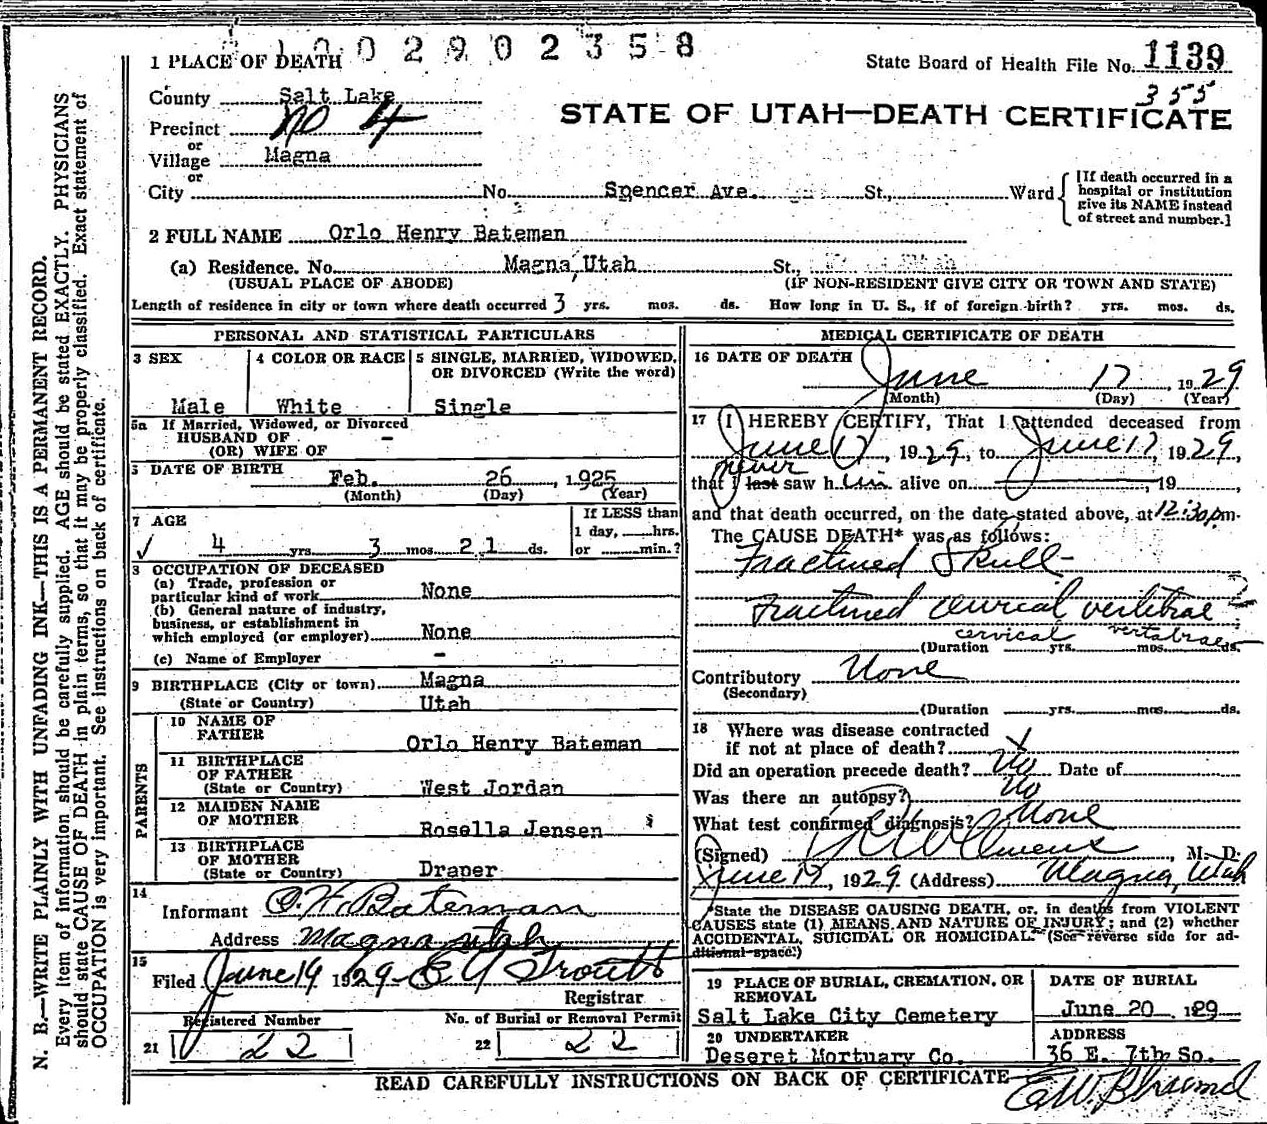 1002902358
1 PLACE OF DEATH
State Board of Health File No. 1139
355
County Salt Lake
Precinct No 4
or
Village Magna
or
City No. Spencer Ave. St., Ward
[If death occurred in a
hospital or institution
give its NAME instead
of street and number.]
STATE OF UTAH—DEATH CERTIFICATE
2 FULL NAME Orlo Henry Bateman
(a) Residence. No. Magna, Utah St.,
(USUAL PLACE OF ABODE) (IF NON-RESIDENT GIVE CITY OR TOWN AND STATE)
Length of residence in city or town where death occurred 3 yrs. mos. ds. How long in U. S., if of foreign birth? yrs. mos. ds.
PERSONAL AND STATISTICAL PARTICULARS
3 SEX
Male
4 COLOR OR RACE
White
5 SINGLE, MARRIED, WIDOWED,
OR DIVORCED (Write the word)
Single
5a If Married, Widowed, or Divorced
HUSBAND OF -
(OR) WIFE OF
DATE OF BIRTH
Feb. 26, 1925
(Month) (Day) (Year)
7 AGE
✓ 4 yrs. 3 mos. 21 ds.
If LESS than
1 day, hrs.
or min.?
8 OCCUPATION OF DECEASED
(a) Trade, profession or
particular kind of work None
(b) General nature of industry,
business, or establishment in
which employed (or employer) None
(c) Name of Employer -
9 BIRTHPLACE (City or town) Magna
(State or Country) Utah
PARENTS
10 NAME OF
FATHER
Orlo Henry Bateman
11 BIRTHPLACE
OF FATHER
(State or Country) West Jordan
12 MAIDEN NAME
OF MOTHER
Rosella Jensen
13 BIRTHPLACE
OF MOTHER
(State or Country) Draper
14
Informant O. H. Bateman
Address Magna Utah
15
Filed June 19 1929 E Y Troutt
Registrar
Registered Number
21 22
No. of Burial or Removal Permit
22 22
MEDICAL CERTIFICATE OF DEATH
16 DATE OF DEATH
June 17, 1929
(Month) (Day) (Year)
17 I HEREBY CERTIFY, That I attended deceased from
June 17, 1929, to June 17, 1929,
never
that I last saw him alive on , 19 ,
and that death occurred, on the date stated above, at 12:30 pm.
The CAUSE OF DEATH* was as follows:
Fractured Skull-
Fractured cervical vertebrae 2
cervical vertabrae
(Duration yrs. mos. ds.
Contributory None
(Secondary)
(Duration yrs. mos. ds.
18 Where was disease contracted
if not at place of death?
Did an operation precede death? No Date of
Was there an autopsy? No
What test confirmed diagnosis? None
(Signed) Owens, M. D.
June 17, 1929 (Address) Magna, Utah
*State the DISEASE CAUSING DEATH, or, in deaths from VIOLENT
CAUSES state (1) MEANS AND NATURE OF INJURY; and (2) whether
ACCIDENTAL, SUICIDAL OR HOMICIDAL. (See reverse side for ad-
ditional space.)
19 PLACE OF BURIAL, CREMATION, OR
REMOVAL
Salt Lake City Cemetery
DATE OF BURIAL
June 20 1929
20 UNDERTAKER
Deseret Mortuary Co.
ADDRESS
36 E. 7th So.
READ CAREFULLY INSTRUCTIONS ON BACK OF CERTIFICATE
N. B.—WRITE PLAINLY WITH UNFADING INK—THIS IS A PERMANENT RECORD.
Every item of information should be carefully supplied. AGE should be stated EXACTLY. PHYSICIANS
should state CAUSE OF DEATH in plain terms, so that it may be properly classified. Exact statement of
OCCUPATION is very important. See instructions on back of certificate.